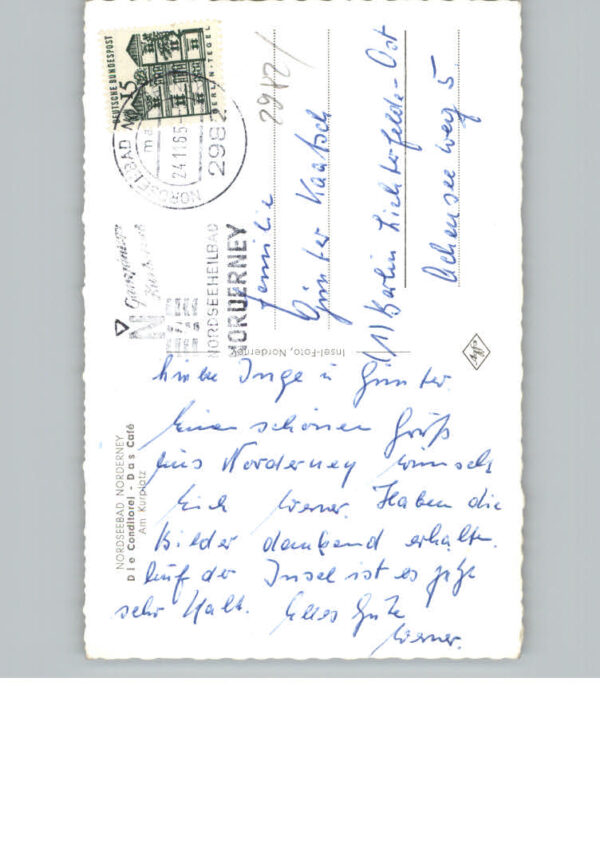 Liebe Inge u. Günter.
Einen schönen Gruß
aus Norderney wünscht
Euch Werner. Haben die
Bilder dankend erhalten.
Auf der Insel ist es jetzt
sehr kalt. Alles Gute
Werner.
Familie
Günter Kaatsch
1/1) Berlin Lichterfelde-Ost
Achensee weg 5
2982/
DEUTSCHE BUNDESPOST
15
BERLIN-TEGEL
NORDSEEBAD
24.11.65
2982
NORDSEEHEILBAD
NORDERNEY
NORDSEEBAD NORDERNEY
Die Conditorei - Das Café
Am Kurplatz
Insel-Foto, Norderney